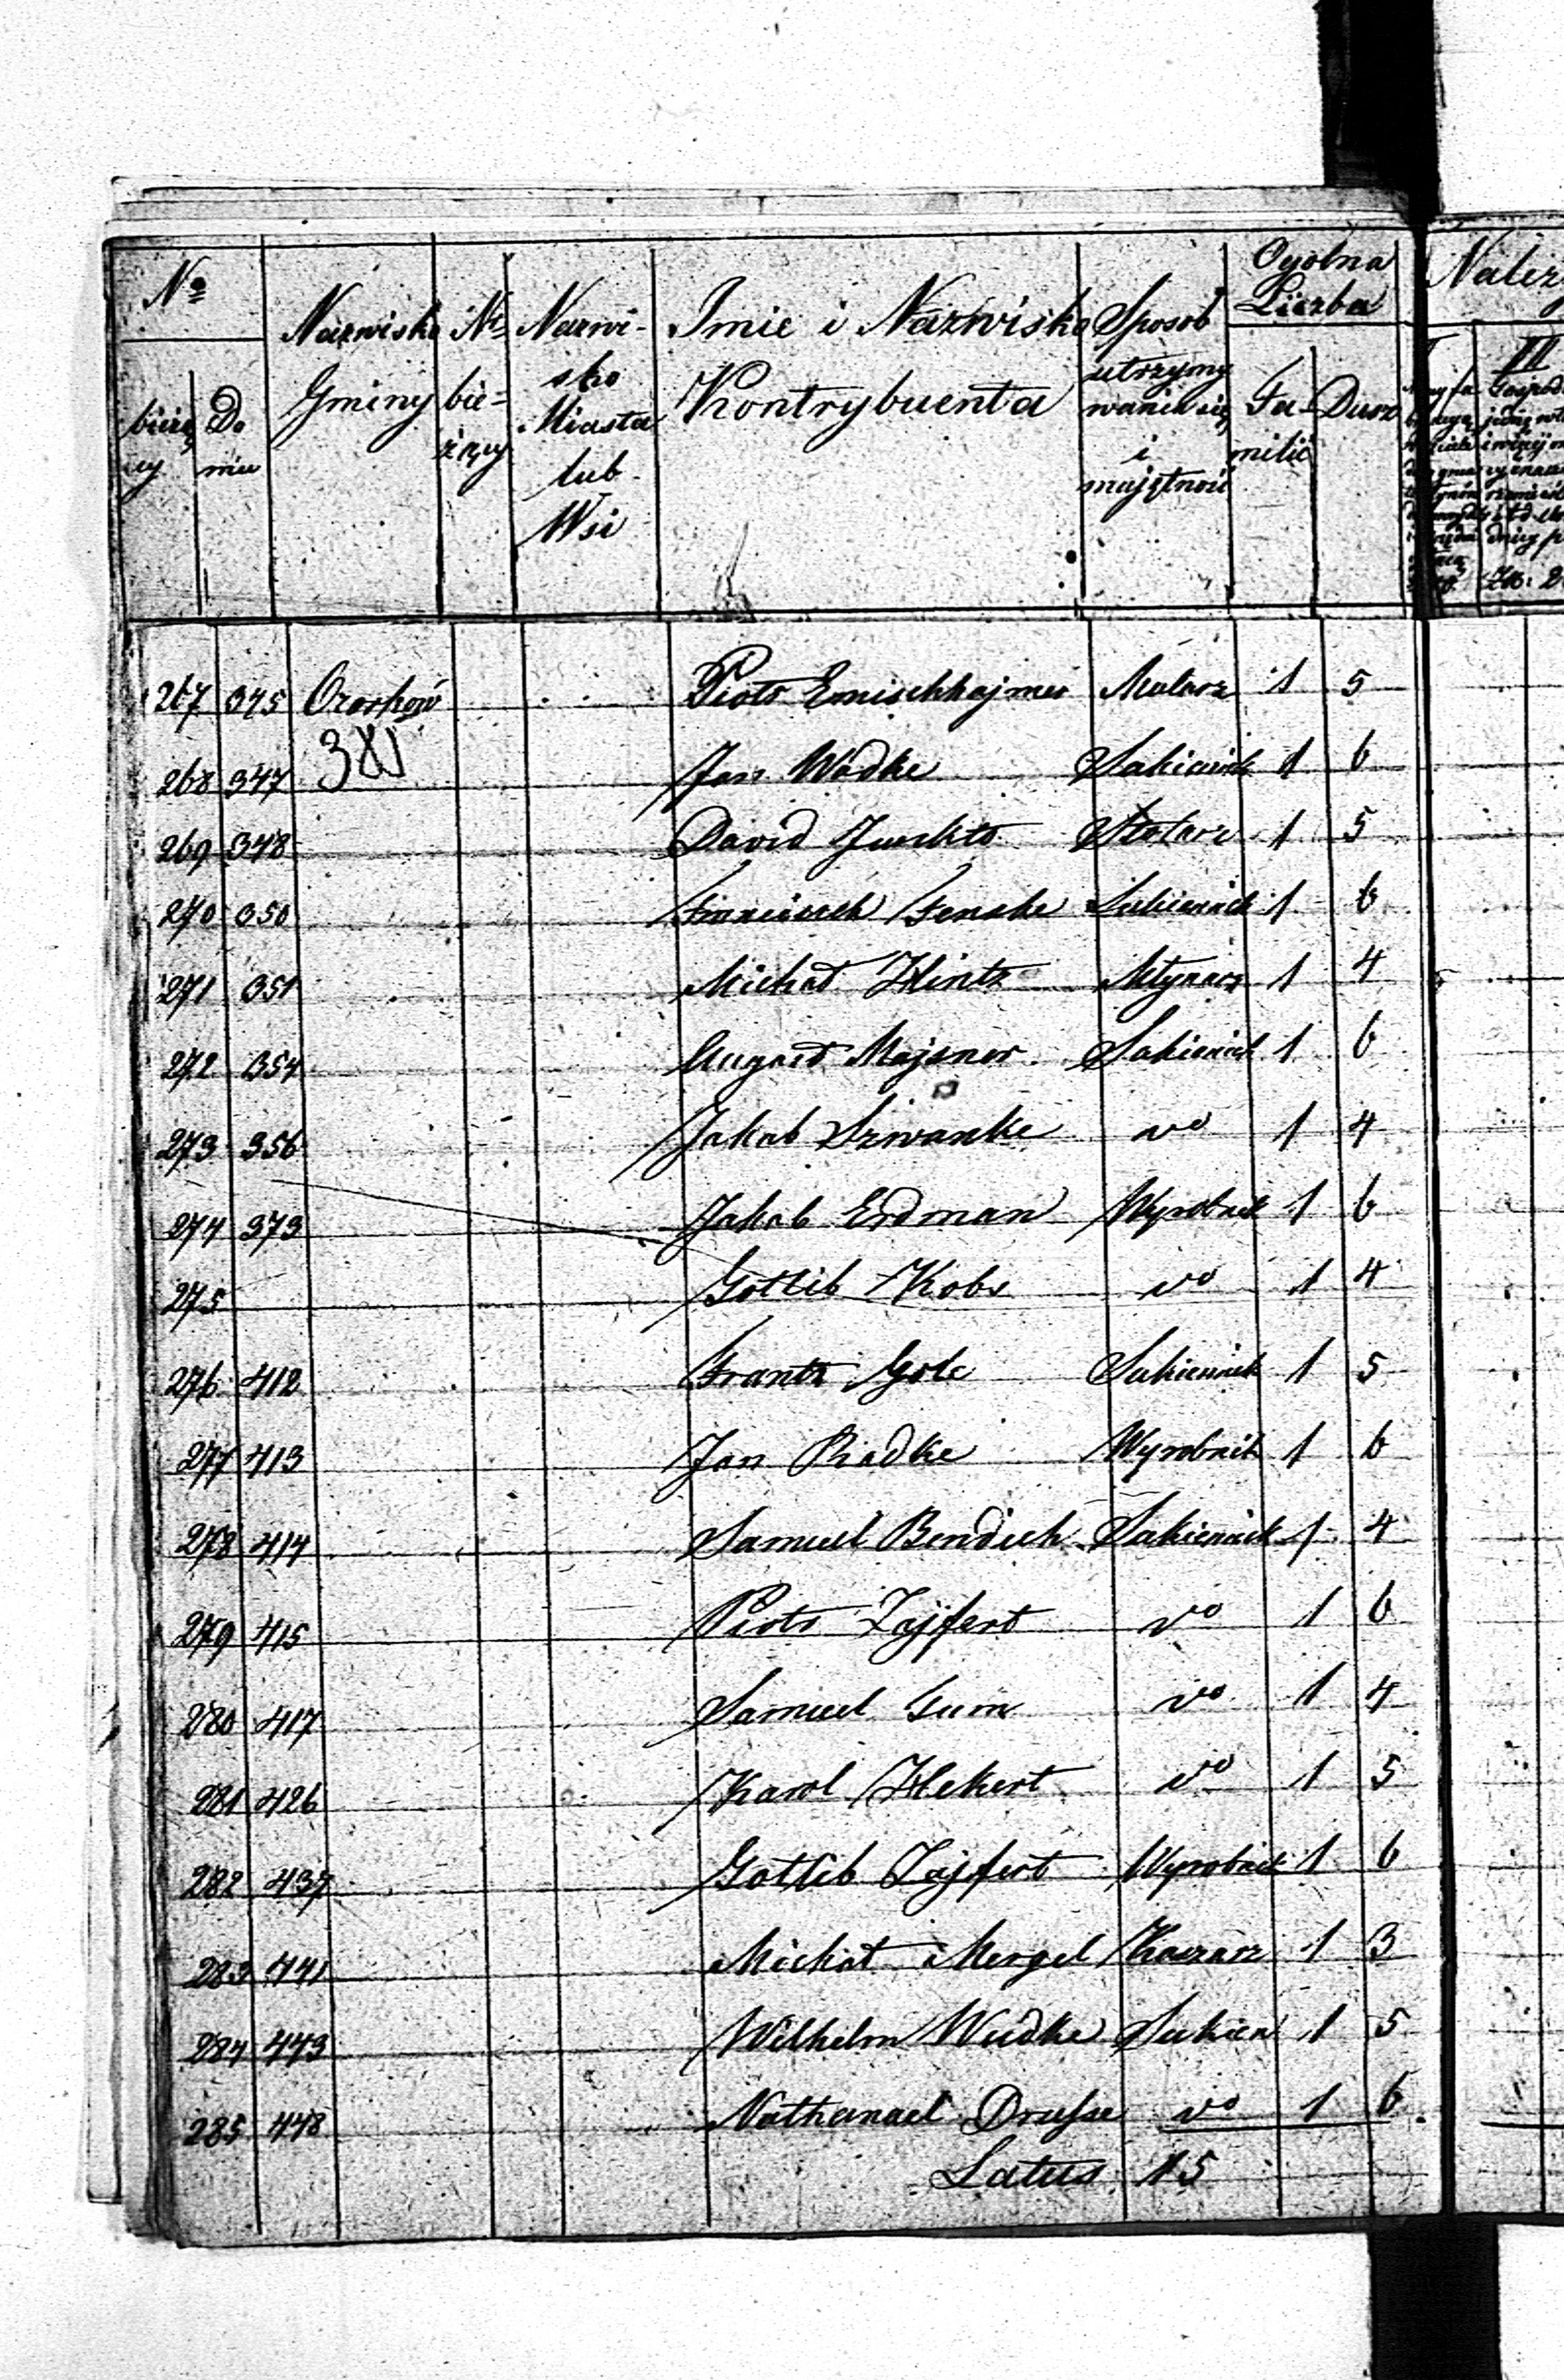 No Nazwisko Nr Nazwi- Imie i Nazwisko Sposob Ogolna Liczba Należ
bieżą cy Do mu Gminy bie- żący sko Miasta lub Wsi Kontrybuenta utrzymy wania się i majętność Fa- milii Dusz II
267 345 Ozorków Piotr Malarz 1 5
268 347 381 Jan Wodke Sukiennik 1 6
269 348 David Stolarz 1 5
270 350 Franciszek Fenske Sukiennik 1 6
271 351 Michał Hintz Młynarz 1 4
272 354 August Majsner Sukiennik 1 6
273 356 Jakub Szwanke vo 1 4
274 373 Jakub Erdman Wyrobnik 1 6
275 Gotlib Kobs vo 1 4
276 412 Frantz Gole Sukiennik 1 5
277 413 Jan Radke Wyrobnik 1 6
278 414 Samuel Bendich Sukiennik 1 4
279 415 Piotr Zajfert vo 1 6
280 417 Samuel Gum vo 1 4
281 426 Karol Hekert vo 1 5
282 437 Gotlib Zajfert Wyrobnik 1 6
283 441 Michał Mergel 1 3
284 443 Wilhelm Wudke Sukien 1 5
285 448 Nathanael Drusse vo 1 6
Latus 15